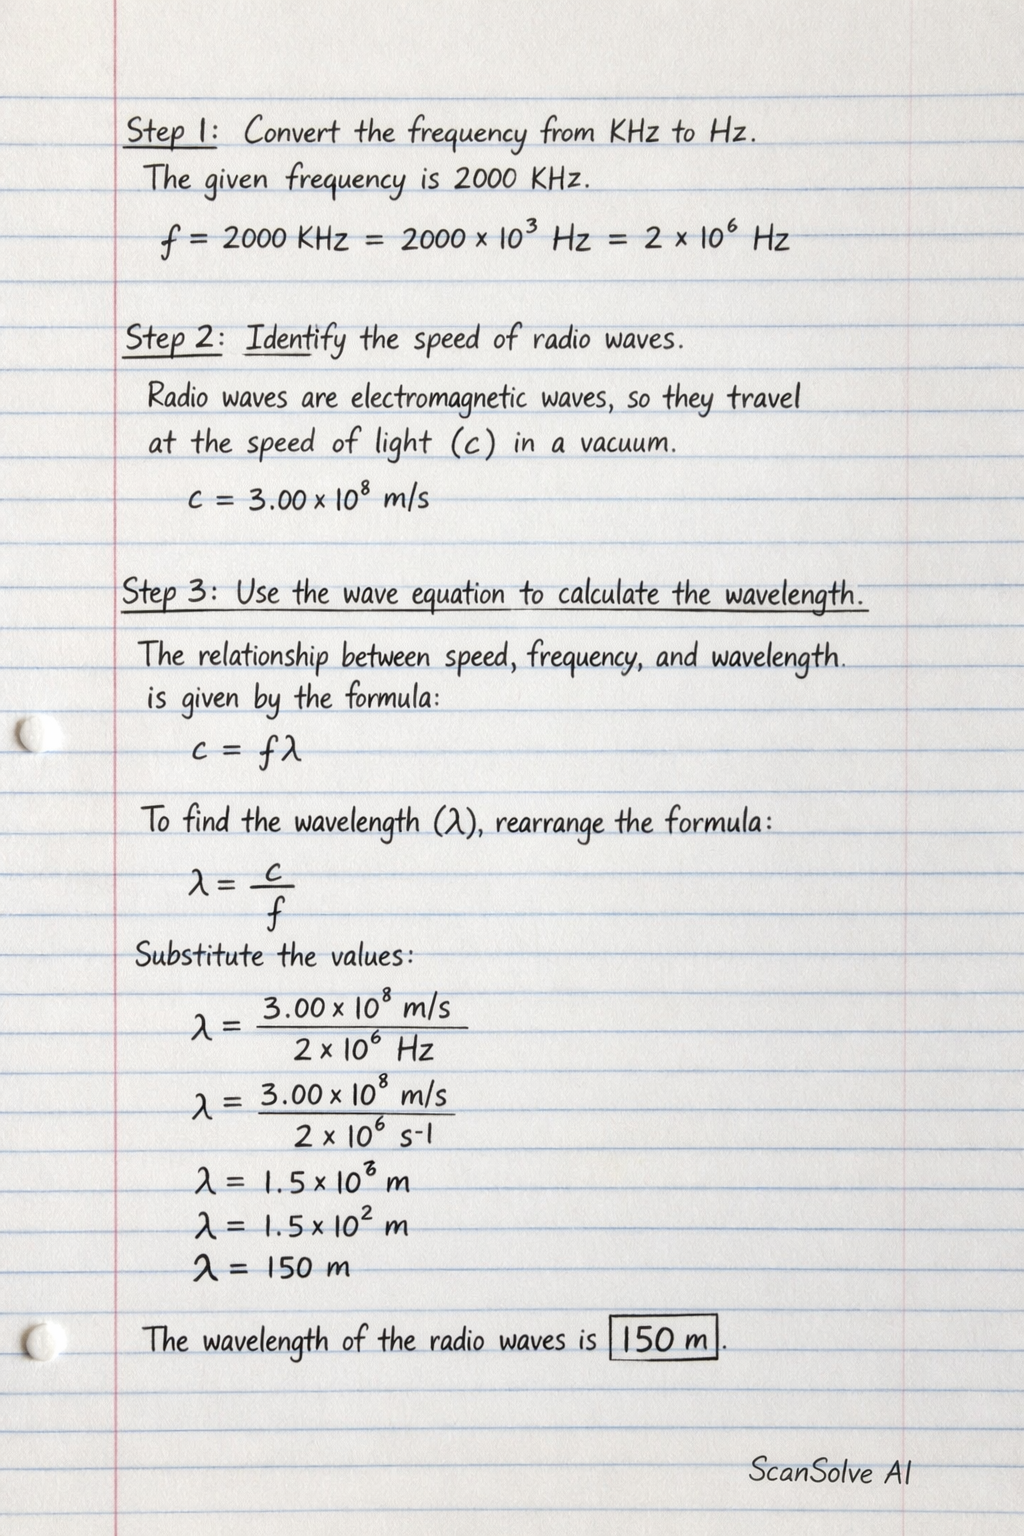 Step 1: Convert the frequency from KHz to Hz.
The given frequency is 2000 KHz.
f = 2000 KHz = 2000 × 10³ Hz = 2 × 10⁶ Hz
Step 2: Identify the speed of radio waves.
Radio waves are electromagnetic waves, so they travel
at the speed of light (c) in a vacuum.
c = 3.00 × 10⁸ m/s
Step 3: Use the wave equation to calculate the wavelength.
The relationship between speed, frequency, and wavelength.
is given by the formula:
c = fλ
To find the wavelength (λ), rearrange the formula:
λ = c
f
Substitute the values:
λ = 3.00 × 10⁸ m/s
2 × 10⁶ Hz
λ = 3.00 × 10⁸ m/s
2 × 10⁶ s-1
λ = 1.5 × 10 m
λ = 1.5 × 10² m
λ = 150 m
The wavelength of the radio waves is 150 m.
ScanSolve AI